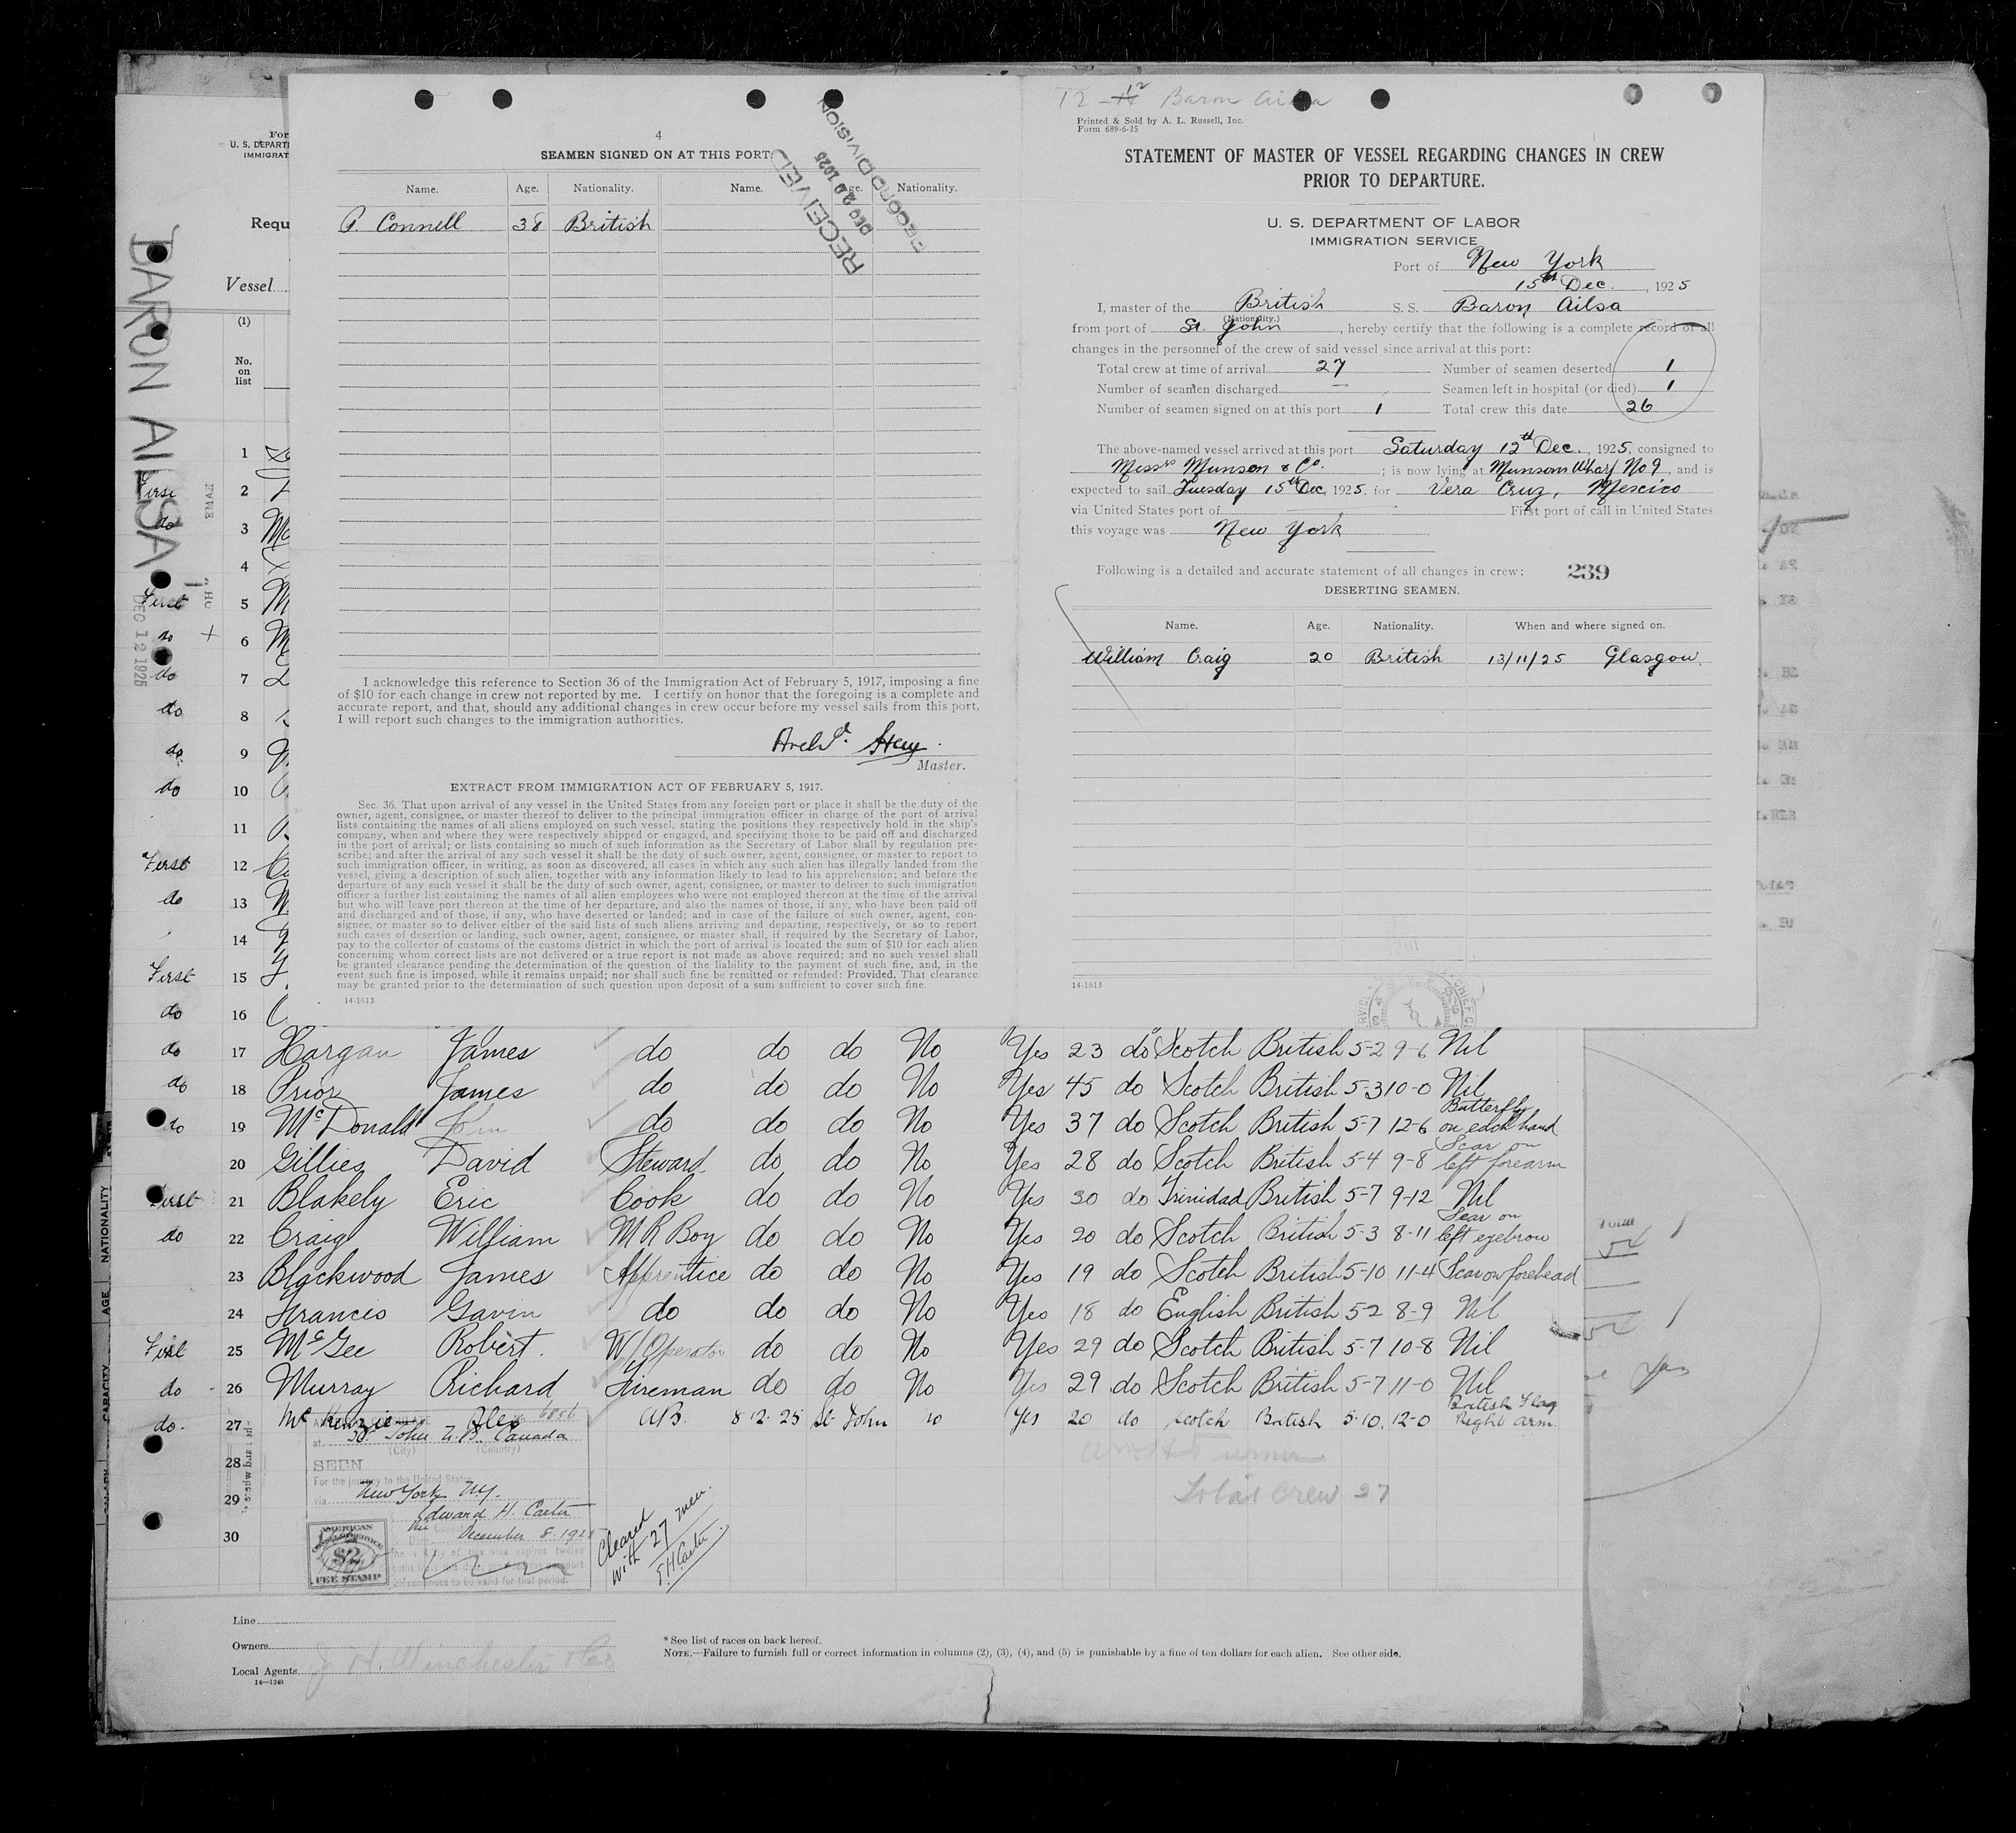 4
SEAMEN SIGNED ON AT THIS PORT.
Name. Age. Nationality. Name. Age. Nationality.
P Connell 38 British
RECEIVED
DEC 20 1925
RECORD DIVISION
I acknowledge this reference to Section 36 of the Immigration Act of February 5, 1917, imposing a fine
of $10 for each change in crew not reported by me. I certify on honor that the foregoing is a complete and
accurate report, and that, should any additional changes in crew occur before my vessel sails from this port,
I will report such changes to the immigration authorities.
Archd.
Master.
EXTRACT FROM IMMIGRATION ACT OF FEBRUARY 5, 1917.
Sec. 36. That upon arrival of any vessel in the United States from any foreign port or place it shall be the duty of the
owner, agent, consignee, or master thereof to deliver to the principal immigration officer in charge of the port of arrival
lists containing the names of all aliens employed on such vessel, stating the positions they respectively hold in the ship's
company, when and where they were respectively shipped or engaged, and specifying those to be paid off and discharged
in the port of arrival; or lists containing so much of such information as the Secretary of Labor shall by regulation pre-
scribe; and after the arrival of any such vessel it shall be the duty of such owner, agent, consignee, or master to report to
such immigration officer, in writing, as soon as discovered, all cases in which any such alien has illegally landed from the
vessel, giving a description of such alien, together with any information likely to lead to his apprehension; and before the
departure of any such vessel it shall be the duty of such owner, agent, consignee, or master to deliver to such immigration
officer a further list containing the names of all alien employees who were not employed thereon at the time of the arrival
but who will leave port thereon at the time of her departure, and also the names of those, if any, who have been paid off
and discharged and of those, if any, who have deserted or landed; and in case of the failure of such owner, agent, con-
signee, or master so to deliver either of the said lists of such aliens arriving and departing, respectively, or so to report
such cases of desertion or landing, such owner, agent, consignee, or master shall, if required by the Secretary of Labor,
pay to the collector of customs of the customs district in which the port of arrival is located the sum of $10 for each alien
concerning whom correct lists are not delivered or a true report is not made as above required; and no such vessel shall
be granted clearance pending the determination of the question of the liability to the payment of such fine, and, in the
event such fine is imposed, while it remains unpaid; nor shall such fine be remitted or refunded: Provided, That clearance
may be granted prior to the determination of such question upon deposit of a sum sufficient to cover such fine.
14-1613
12 Baron Ailsa
Printed & Sold by A. L. Russell, Inc.
Form 689-6-25
STATEMENT OF MASTER OF VESSEL REGARDING CHANGES IN CREW
PRIOR TO DEPARTURE.
U. S. DEPARTMENT OF LABOR
IMMIGRATION SERVICE
Port of New York
15th Dec. , 1925
I, master of the British S. S. Baron Ailsa
(Nationality.)
from port of St. John , hereby certify that the following is a complete record of all
changes in the personnel of the crew of said vessel since arrival at this port:
Total crew at time of arrival 27 Number of seamen deserted 1
Number of seamen discharged — Seamen left in hospital (or died) 1
Number of seamen signed on at this port 1 Total crew this date 26
The above-named vessel arrived at this port Saturday 12th Dec. , 1925, consigned to
Messrs Munson & Co. ; is now lying at Munsons Wharf No 9 , and is
expected to sail Tuesday 15th Dec, 1925, for Vera Cruz, Mexico
via United States port of First port of call in United States
this voyage was New York
Following is a detailed and accurate statement of all changes in crew: 239
DESERTING SEAMEN.
Name. Age. Nationality. When and where signed on.
William Craig 20 British 13/11/25 Glasgow.
14-1613
BARON AILSA
DEC 12 1925
U. S. DEPARTM
IMMIGRAT
Requ
Vessel
(1)
No.
on
list
1
First 2
do 3
4
First 5
6
do 7
do 8
do 9
do 10
11
First 12
do 13
14
First 15
do 16
do 17 Hargan James do do do No Yes 23 do Scotch British 5-2 9-6 Nil
do 18 Prior James do do do No Yes 45 do Scotch British 5-3 10-0 Nil
do 19 McDonald John do do do No Yes 37 do Scotch British 5-7 12-6 Butterfly on each hand
20 Gillies David Steward do do No Yes 28 do Scotch British 5-4 9-8 Scar on left forearm
First 21 Blakely Eric Cook do do No Yes 30 do Trinidad British 5-7 9-12 Nil
do 22 Craig William M R Boy do do No Yes 20 do Scotch British 5-3 8-11 Scar on left eyebrow
23 Blackwood James Apprentice do do No Yes 19 do Scotch British 5-10 11-4 Scar on forehead
24 Francis Gavin do do do No Yes 18 do English British 5-2 8-9 Nil
First 25 McGee Robert. W/Operator do do No Yes 29 do Scotch British 5-7 10-8 Nil
do 26 Murray Richard Fireman do do No Yes 29 do Scotch British 5-7 11-0 Nil
do. 27 McKenzie Alex AB. 8 12. 25 St John no Yes 20 do Scotch British 5-10. 12-0 British Flag Right arm.
at St John N.B. Canada
(City) (Country)
28 SEEN
For the journey to the United States
29 via New York N.Y.
Edward H. Carter
30 Date December 8. 192
AMERICAN
CONSULAR SERVICE
$2
FEE STAMP
Cleared
with 27 men.
Total Crew 27
Line
Owners
Local Agents J. H. Winchester & Co
14—1240
* See list of races on back hereof.
NOTE.—Failure to furnish full or correct information in columns (2), (3), (4), and (5) is punishable by a fine of ten dollars for each alien. See other side.
NATIONALITY
AGE
CAPACITY